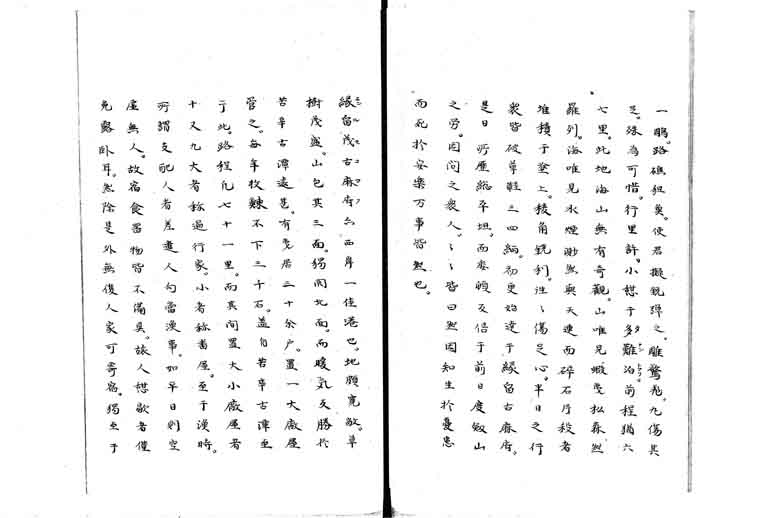 一鵰。路礁租莫。使君擬銃彈之。雖驚飛。九傷其
足。殊為可惜。行里許。小憩于多難泊前程猶六
七里。此地海山無有奇觀。山唯見蝦曳松森然
羅列。海唯見水煙渺然與天連而碎石片殺者
堆積于塗上。稜角銳利。往々傷足心。半日之行
衆皆破草鞋三四緉。初更始達于緣留古麻府。
是日所歷縱平坦。而委頓反倍于前日度峻山
之勞。因問之衆人。々々皆曰然因知生於憂患
而死於安樂万事皆然也。
緣留茂古麻府亦西岸一佳港也。地頗寬敞。草
樹茂盛。山包其三面。獨開北面。而暖氣反勝於
苦辛古潭遠邑。有夷居二十余户。置一大廠屋
管之。每年收鰊不下三千石。蓋自苦辛古潭至
于此。路程凡七十一里。而其間置大小廠屋者
十又九大者称通行家。小者称番屋。至于漁時。
所謂支配人者差遣人勾當漁事。如平日則空
屋無人。故宿食器物皆不滿具。旅人憩歇者僅
免露臥耳。然除是外無復人家可寄宿。獨至于